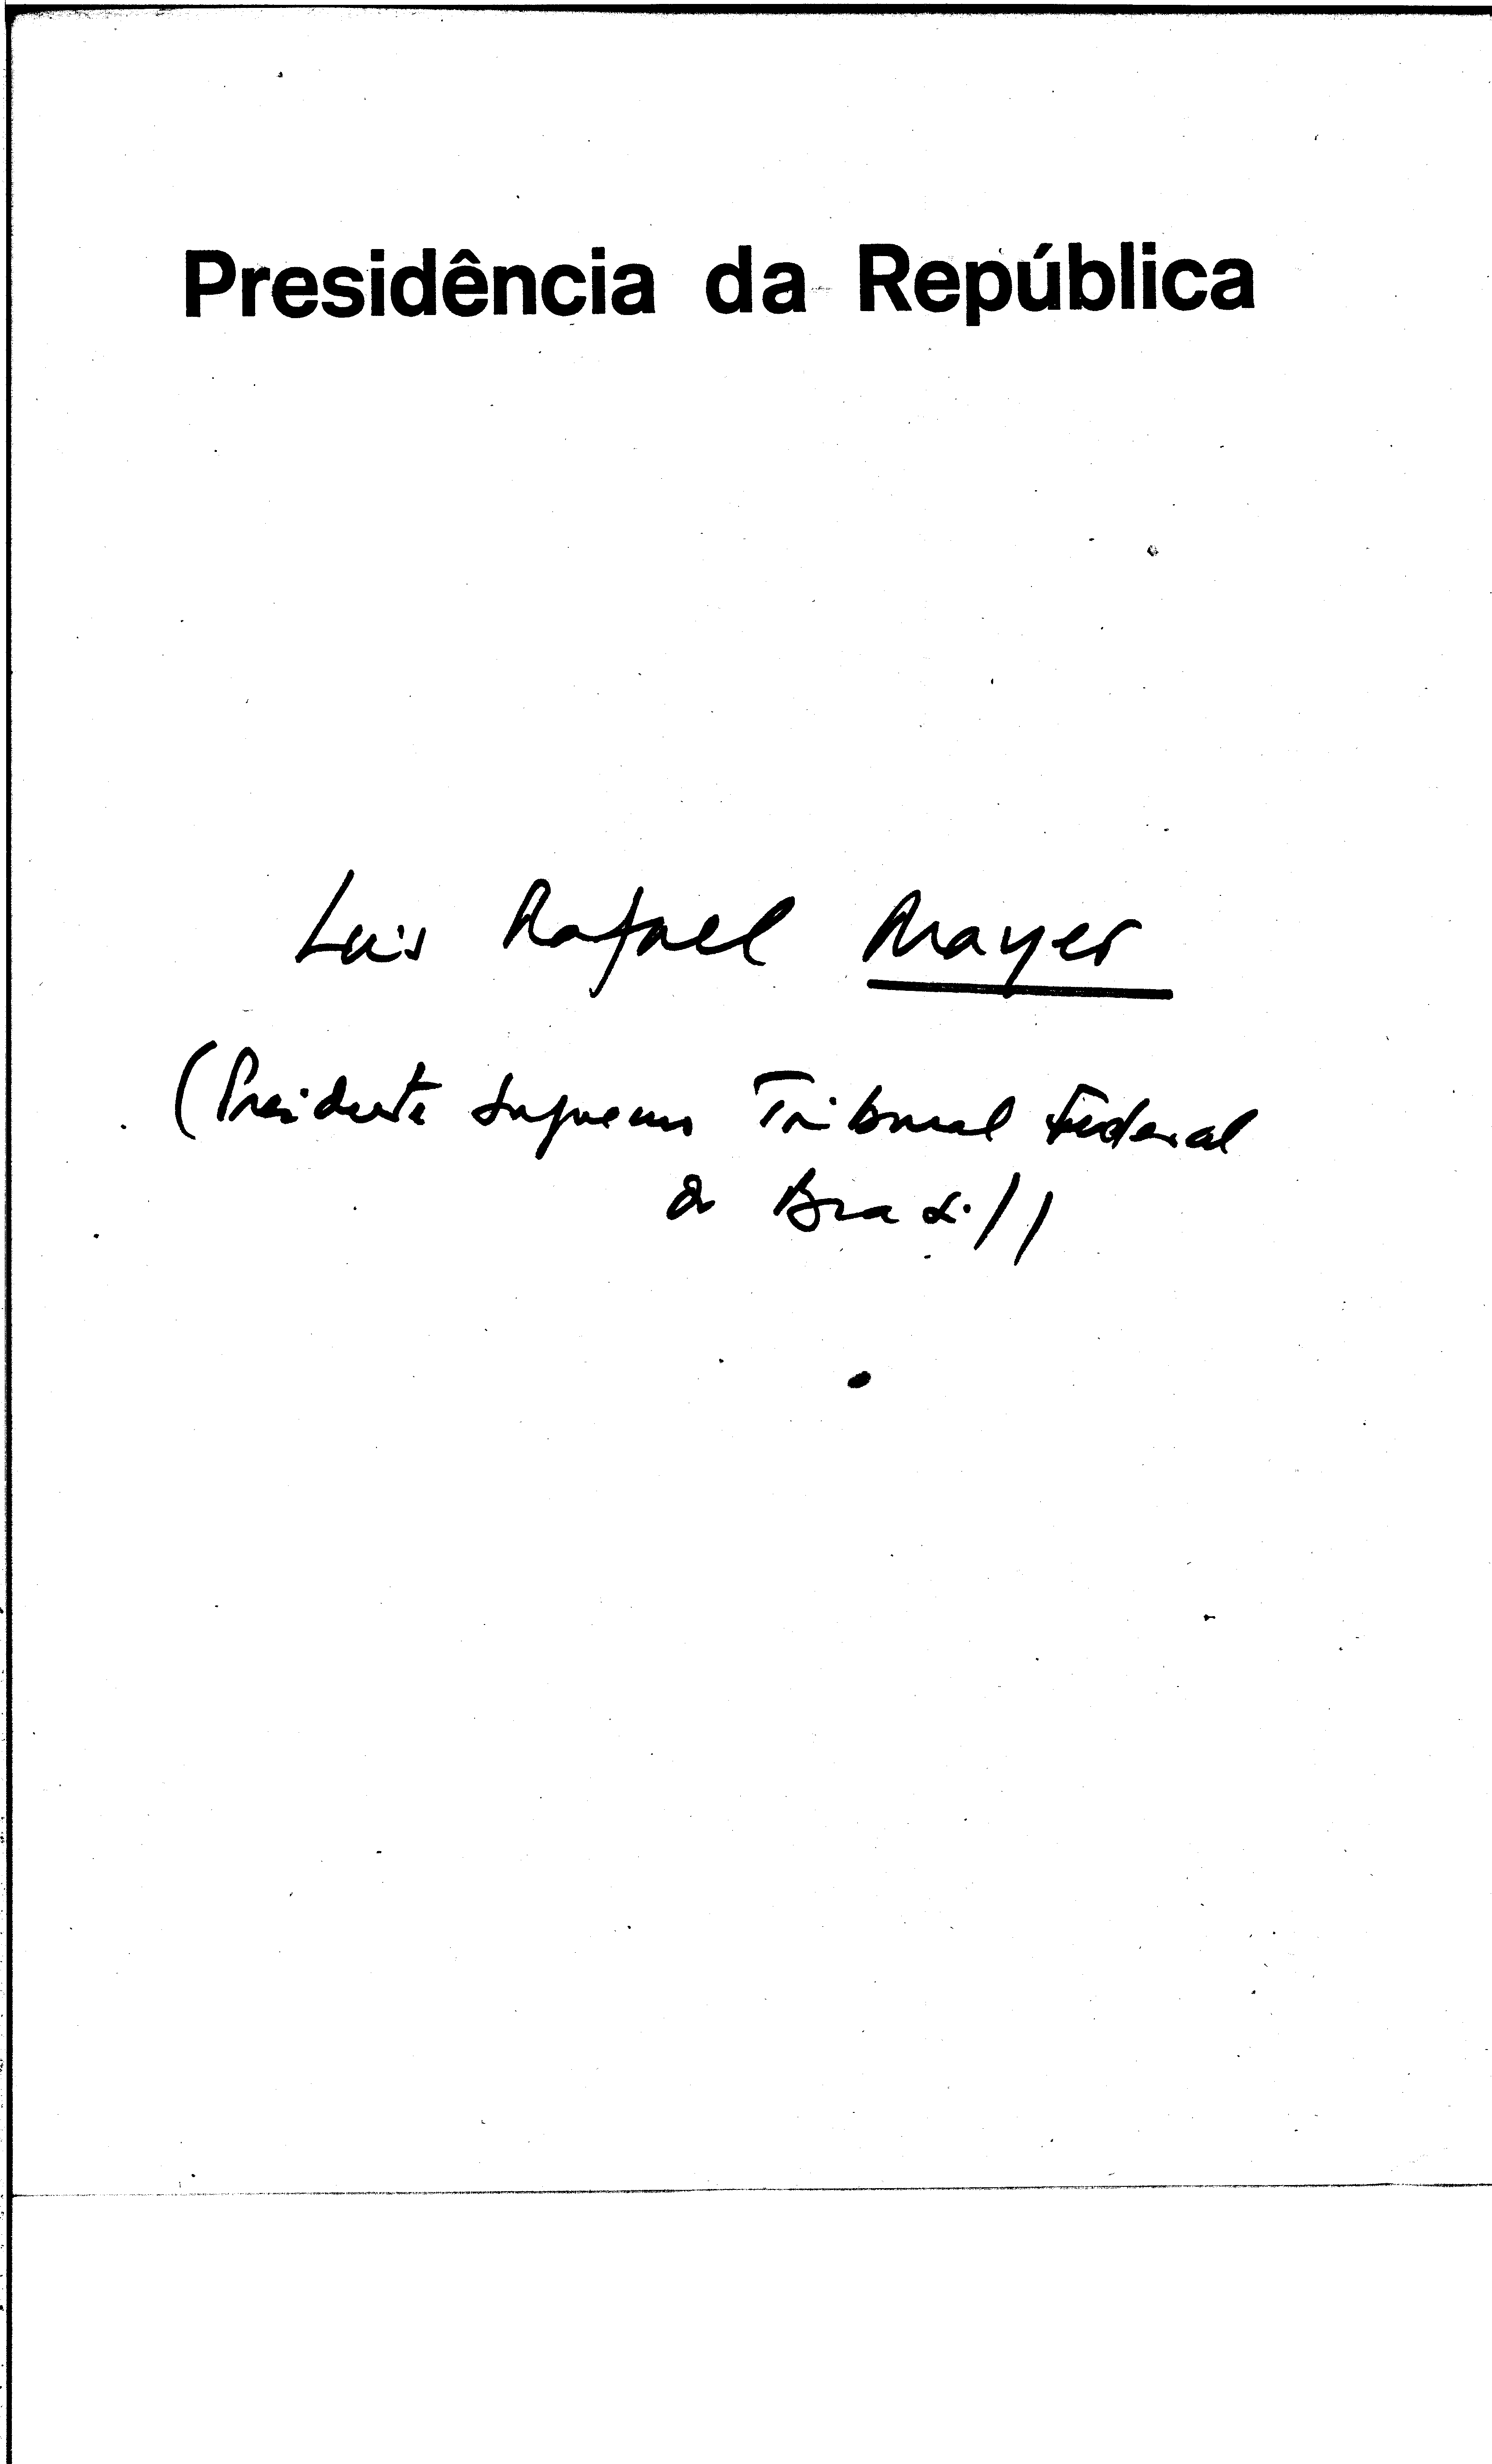 Presidência da República
Luis Rafael Mayer
(Presidente Supremo Tribunal Federal
do Brasil)